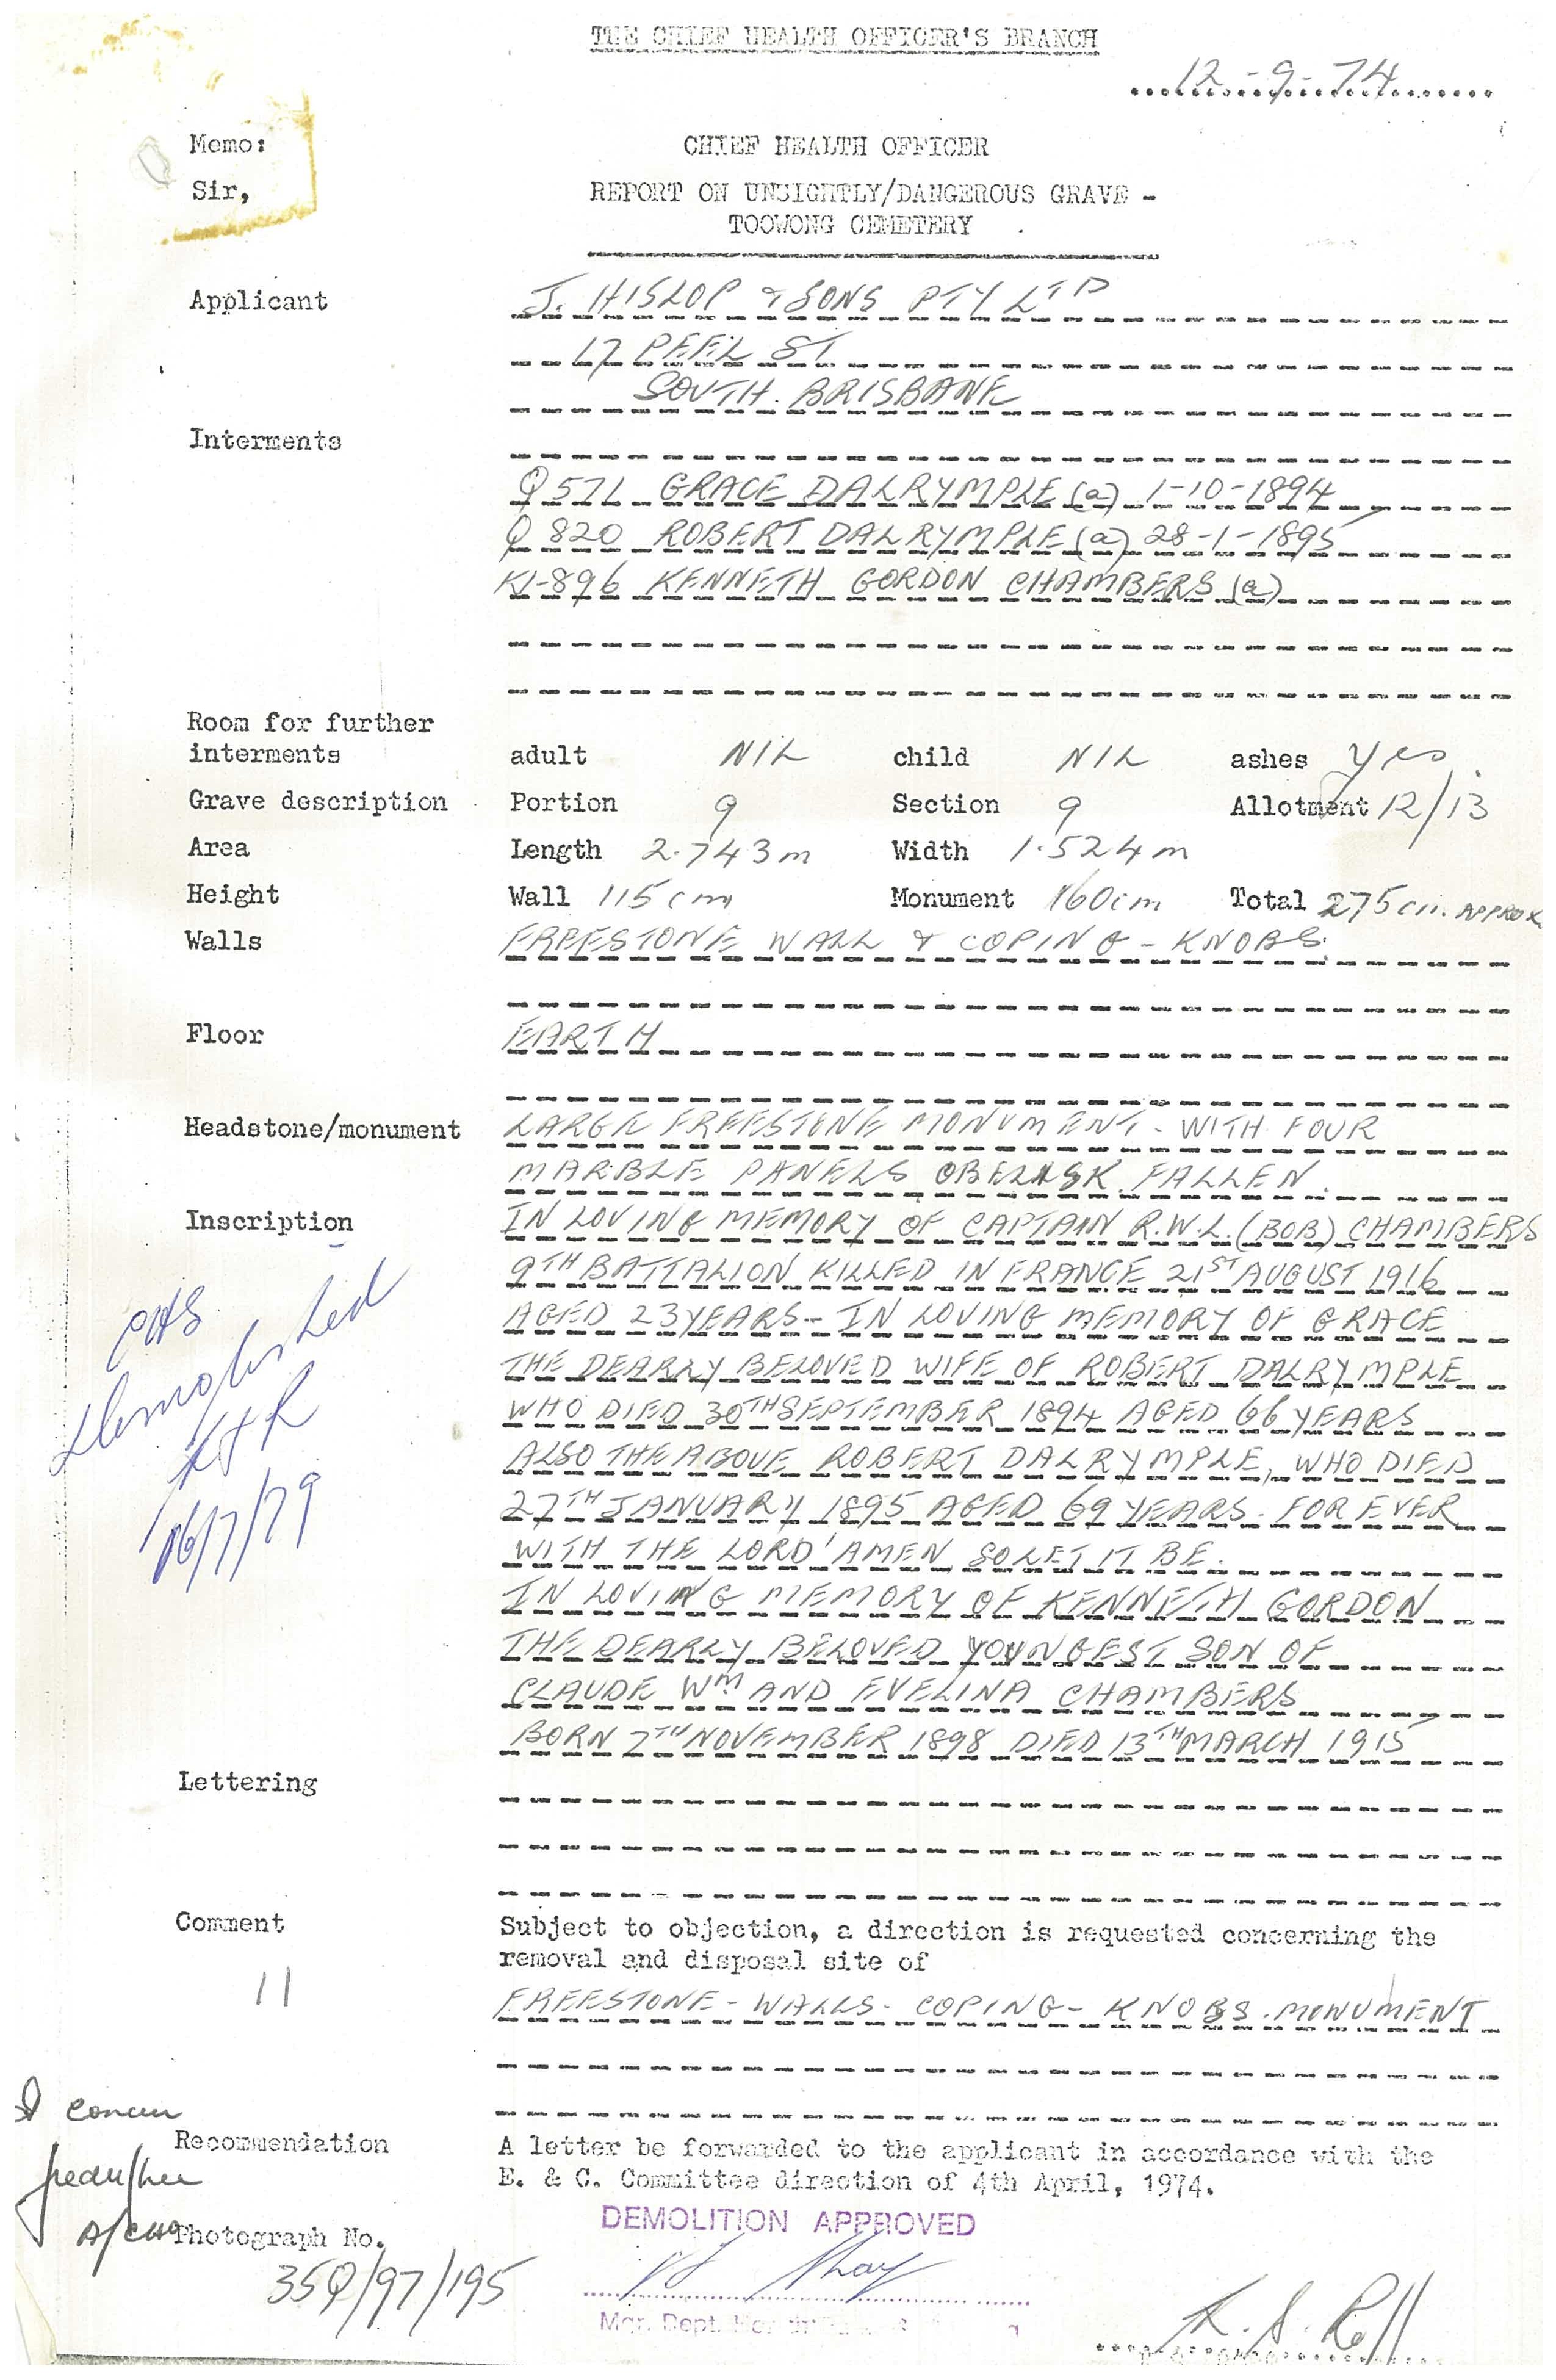 THE CHIEF HEALTH OFFICER'S BRANCH
12-9-74
Memo:
CHIEF HEALTH OFFICER
Sir,
REPORT ON UNSIGHTLY/DANGEROUS GRAVE -
TOOWONG CEMETERY
Applicant J. HISLOP & SONS PTY LTD
17 PEEL ST
SOUTH. BRISBANE
Interments
Q571 GRACE DALRYMPLE (a) 1-10-1894
Q 820 ROBERT DALRYMPLE (a) 28-1-1895
K1-896 KENNETH GORDON CHAMBERS (a)
Room for further
interments adult NIL child NIL ashes yes.
Grave description Portion 9 Section 9 Allotment 12/13
Area Length 2.743m Width 1.524m
Height Wall 115cm Monument 160cm Total 275cm. APPROX
Walls FREESTONE WALL & COPING - KNOBS.
Floor EARTH
Headstone/monument LARGE FREESTONE MONUMENT. WITH FOUR
MARBLE PANELS OBELISK FALLEN.
Inscription IN LOVING MEMORY OF CAPTAIN R.W.L. (BOB) CHAMBERS
9TH BATTALION KILLED IN FRANCE 21ST AUGUST 1916
AGED 23 YEARS - IN LOVING MEMORY OF GRACE
THE DEARLY BELOVED WIFE OF ROBERT DALRYMPLE
WHO DIED 30TH SEPTEMBER 1894 AGED 66 YEARS
ALSO THE ABOVE ROBERT DALRYMPLE, WHO DIED
27TH JANUARY 1895 AGED 69 YEARS. FOR EVER
WITH THE LORD' AMEN SO LET IT BE.
IN LOVING MEMORY OF KENNETH GORDON
THE DEARLY BELOVED YOUNGEST SON OF
CLAUDE WM AND EVELINA CHAMBERS
BORN 7TH NOVEMBER 1898 DIED 13TH MARCH 1915
demolished
16/7/79
Lettering
Comment Subject to objection, a direction is requested concerning the
removal and disposal site of
11
FREESTONE - WALLS - COPING - KNOBS. MONUMENT
I concur
Recommendation A letter be forwarded to the applicant in accordance with the
E. & C. Committee direction of 4th April, 1974.
A/CHO
DEMOLITION APPROVED
Photograph No.
35Q/97/195
Mgr. Dept.